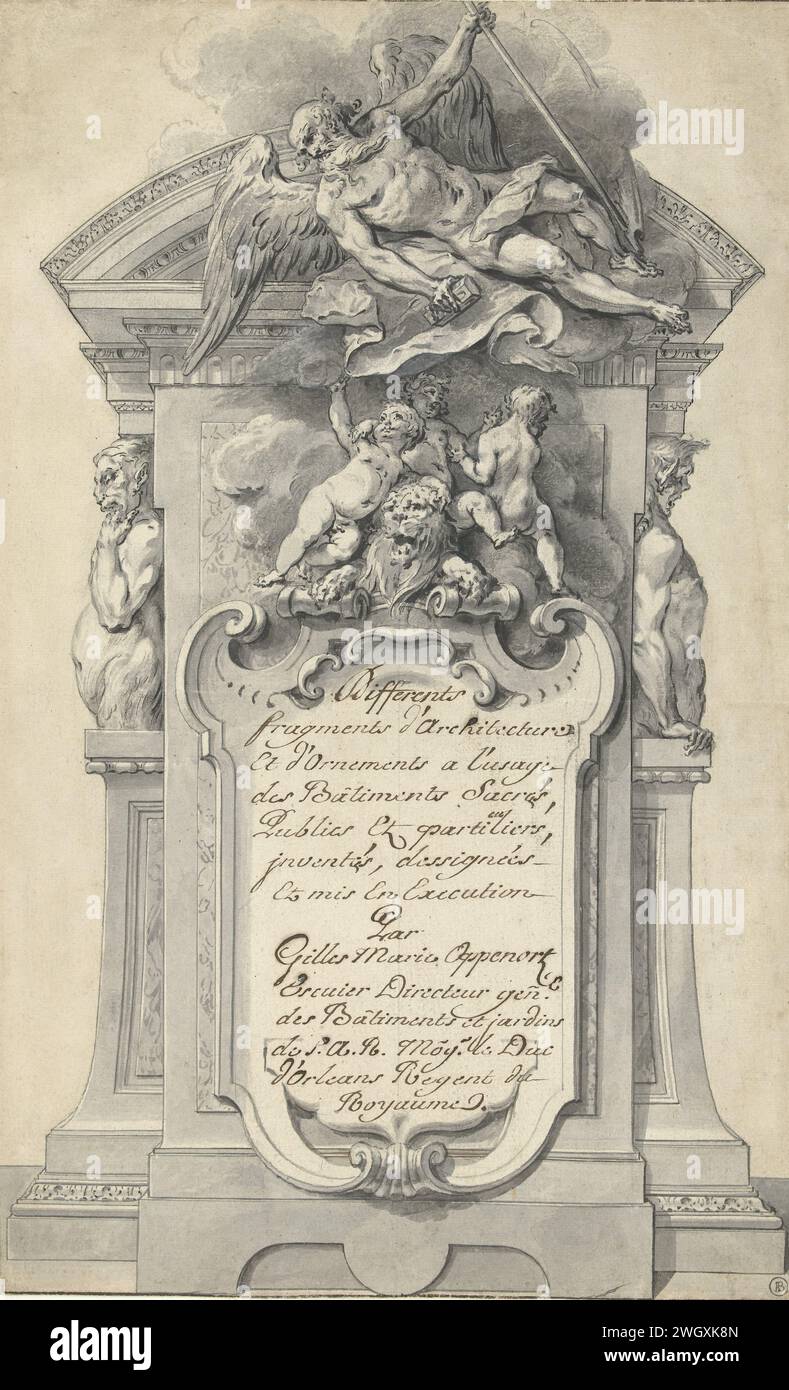 Differents
fragments d'Architecture
Et d'Ornements a l'usage
des Bâtiments Sacrés,
Publics Et particuliers,
jnventés, dessignées
Et mis En Execution
Par
Gilles Marie Oppenort
Escuier Directeur gen̄.
des Bâtiments et jardins
de S.A.R. Mōgr. le Duc
d'Orleans Regent du
Royaume.
a
alamy
alamy
Image ID: 2WGXK8N
www.alamy.com